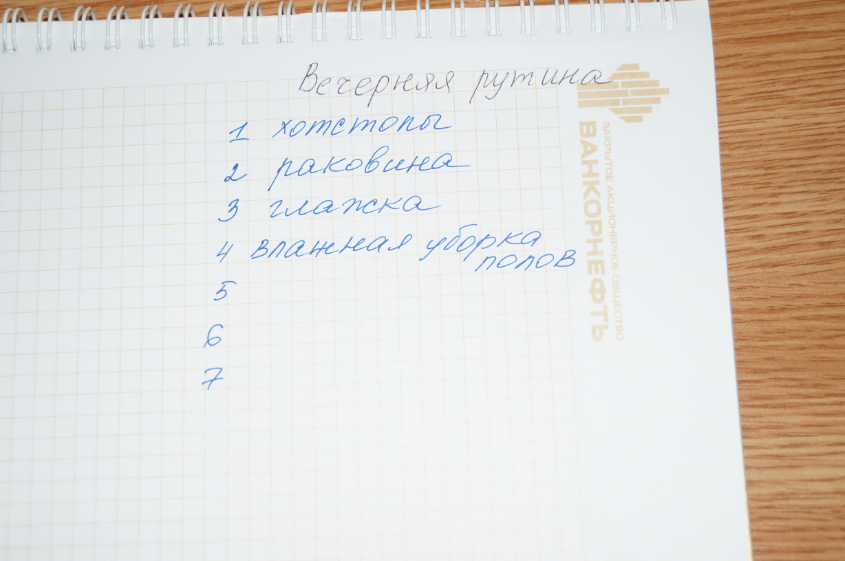 Вечерняя рутина
1 хотстопы
2 раковина
3 глажка
4 влажная уборка
полов
5
6
7
ЗАКРЫТОЕ АКЦИОНЕРНОЕ ОБЩЕСТВО
ВАНКОРНЕФТЬ